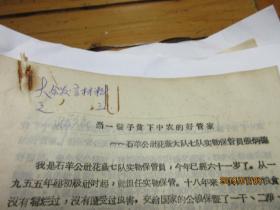 大会发言材料
之
当一辈子贫下中农的好管家
——石羊公社花莲大队七队实物保管员
我是石羊公社花莲七队实物保管员，今年已经六十一岁了。从一
九五五年起初级社时起，就担任实物保管。十八年来
没有霉变过，没有遭受过虫害，交给国家的公粮保证了一干、二净